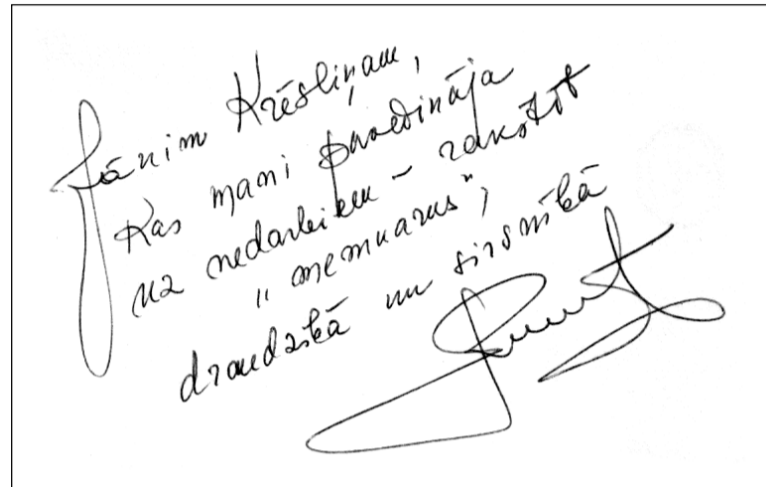 Jānim Krēsliņam,
kas mani pavedināja
uz nedarbiem – rakstot
"memuarus",
draudzībā un sirsnībā